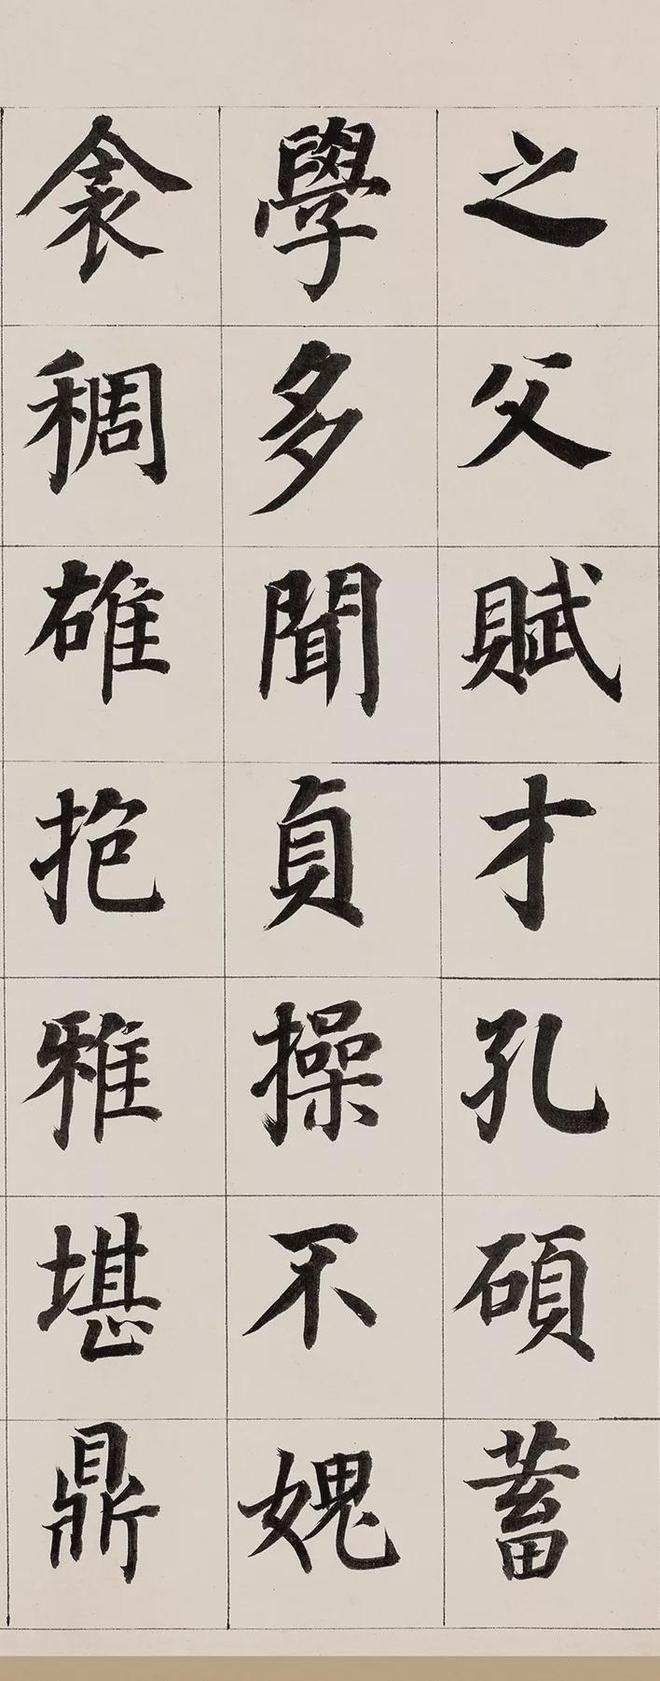 之父賦才孔碩蓄
學多聞貞操不媿
衾裯雄抱雅堪鼎